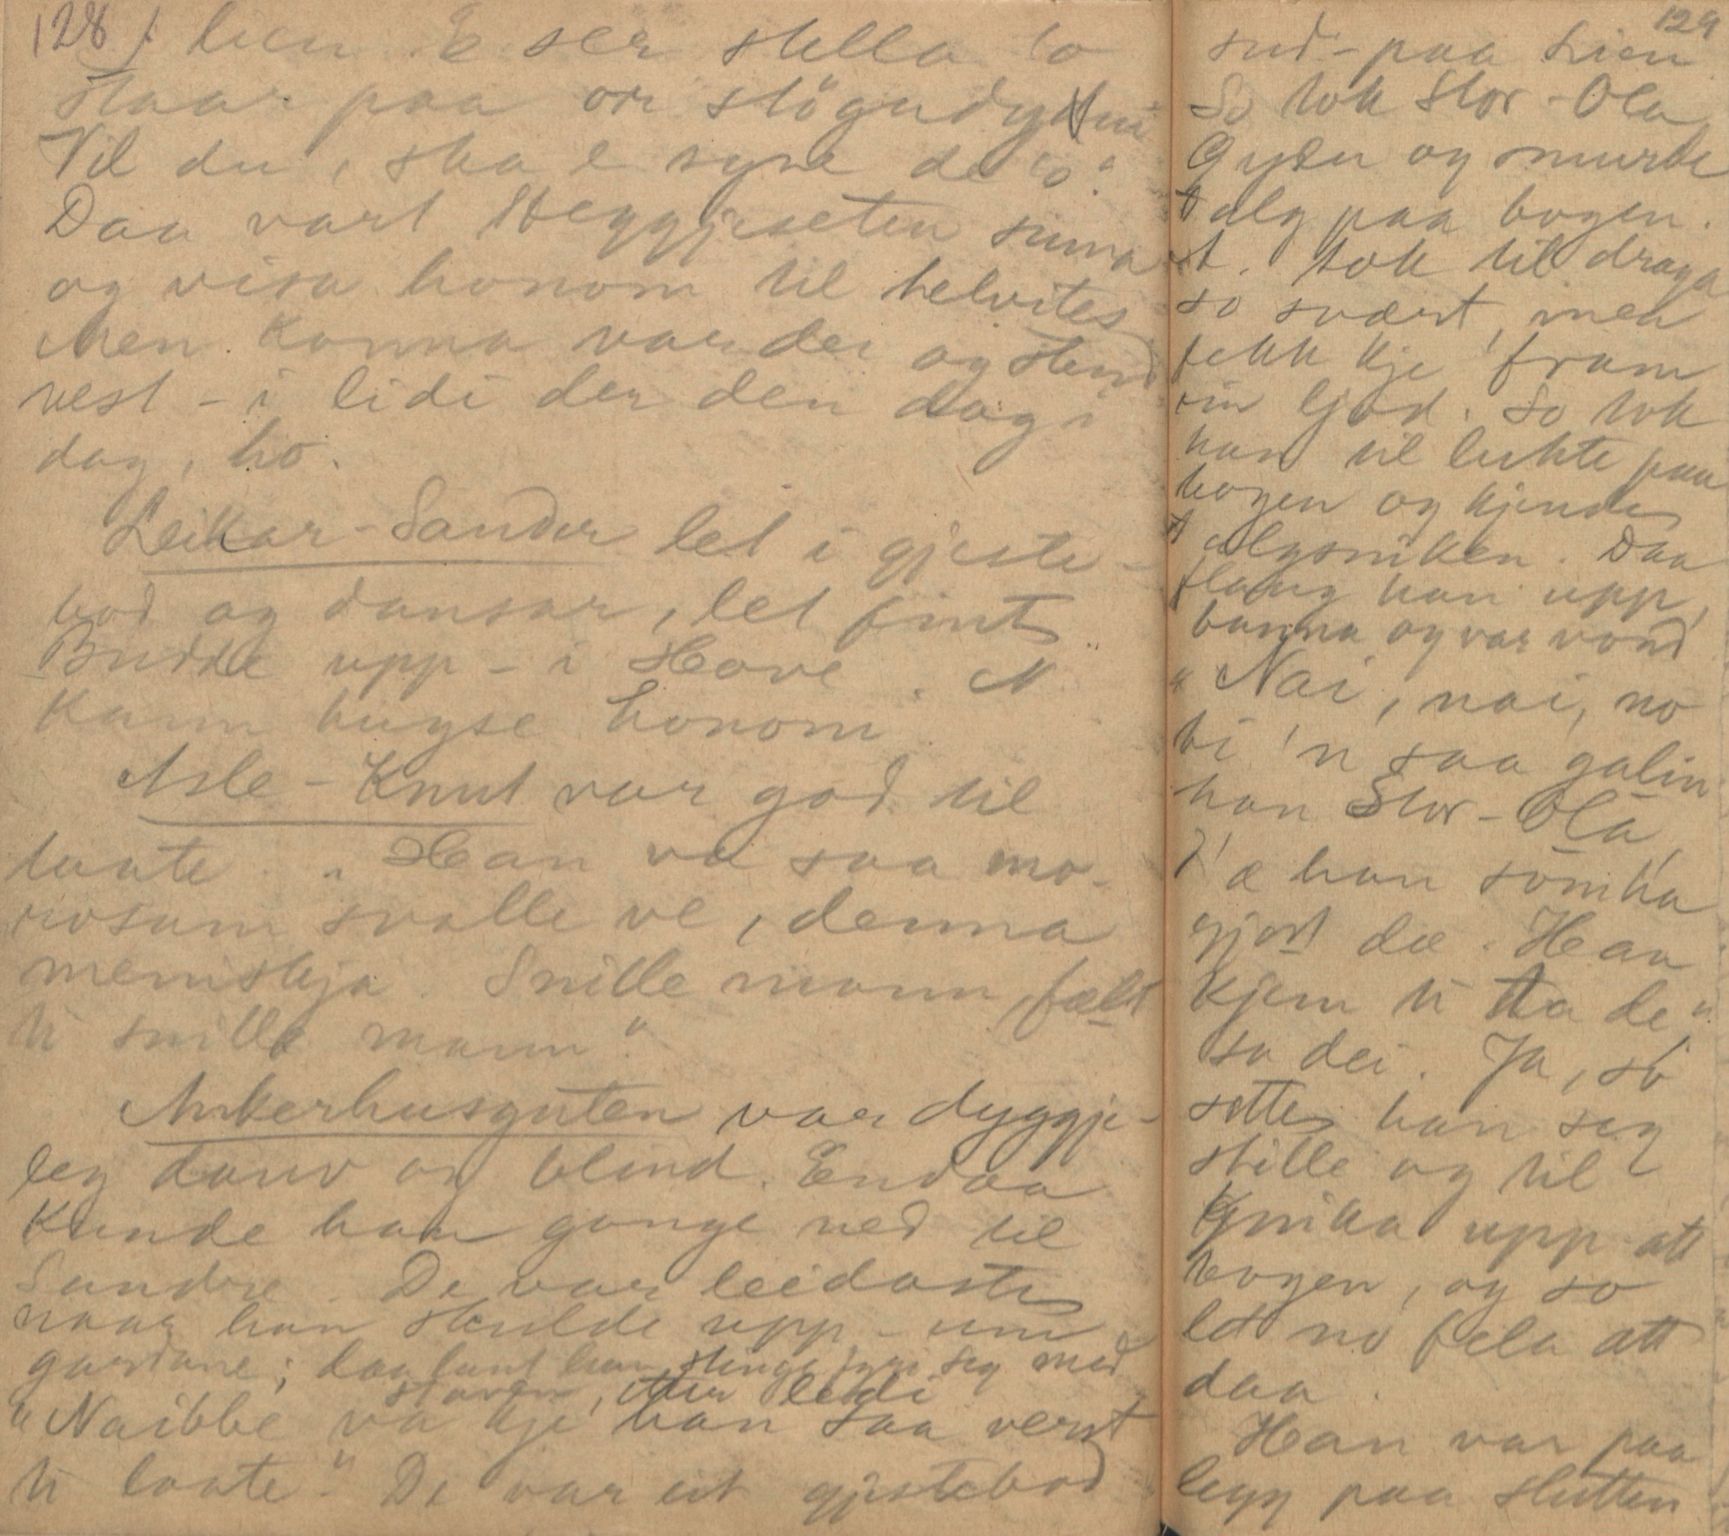 128
lien. E ser stella 'o
staar paa or stögudyttni
Vil du, ska e syne de 'o."
Daa vart Heggjeseten sinna
og visa honom til helvites
Men Konna var der og stend
vest - i lidi der den dag i
dag, ho.
Leikar-Sander let i gjeste-
bod og dansar, let fint
Budde upp - i Hove. N
Kann hugse honom.
Asle-Knut var god til
laate. "Han va saa mo-
rosam svalle ve, denna
mennishja. Snille mann, fælt
ti snille mann".
Ankerhusguten var dyggje-
leg dauv og blind. Endaa
Kunde han gange ned til
Sundre. De var leidaste
naar han skulde upp - um
gardane; daa lant han stinge fyri seg med
staven, etter leidi
"Naibbe va kje han saa verst
ti laate." De var eit gjestebod
129
sud - paa Lien
So tok Stor-Ola
Gyten og smurde
talg paa bogen.
A. tok til draga
so svært, men
fekk kje fram
ein ljod. So tok
han til lukte paa
bogen og kjende
talgsniken. Daa
flaug han upp,
banna og var vond
"Nai, nai, no
bi 'n saa galin
han Stor-Ola,
D'æ han som ha
gjort dæ. Han
kjem ti ta de",
sa dei. Ja, so
sette han seg
stille og til
Gnika upp att
bogen, og so
let no fela att
daa.
Han var paa
legg paa slutten